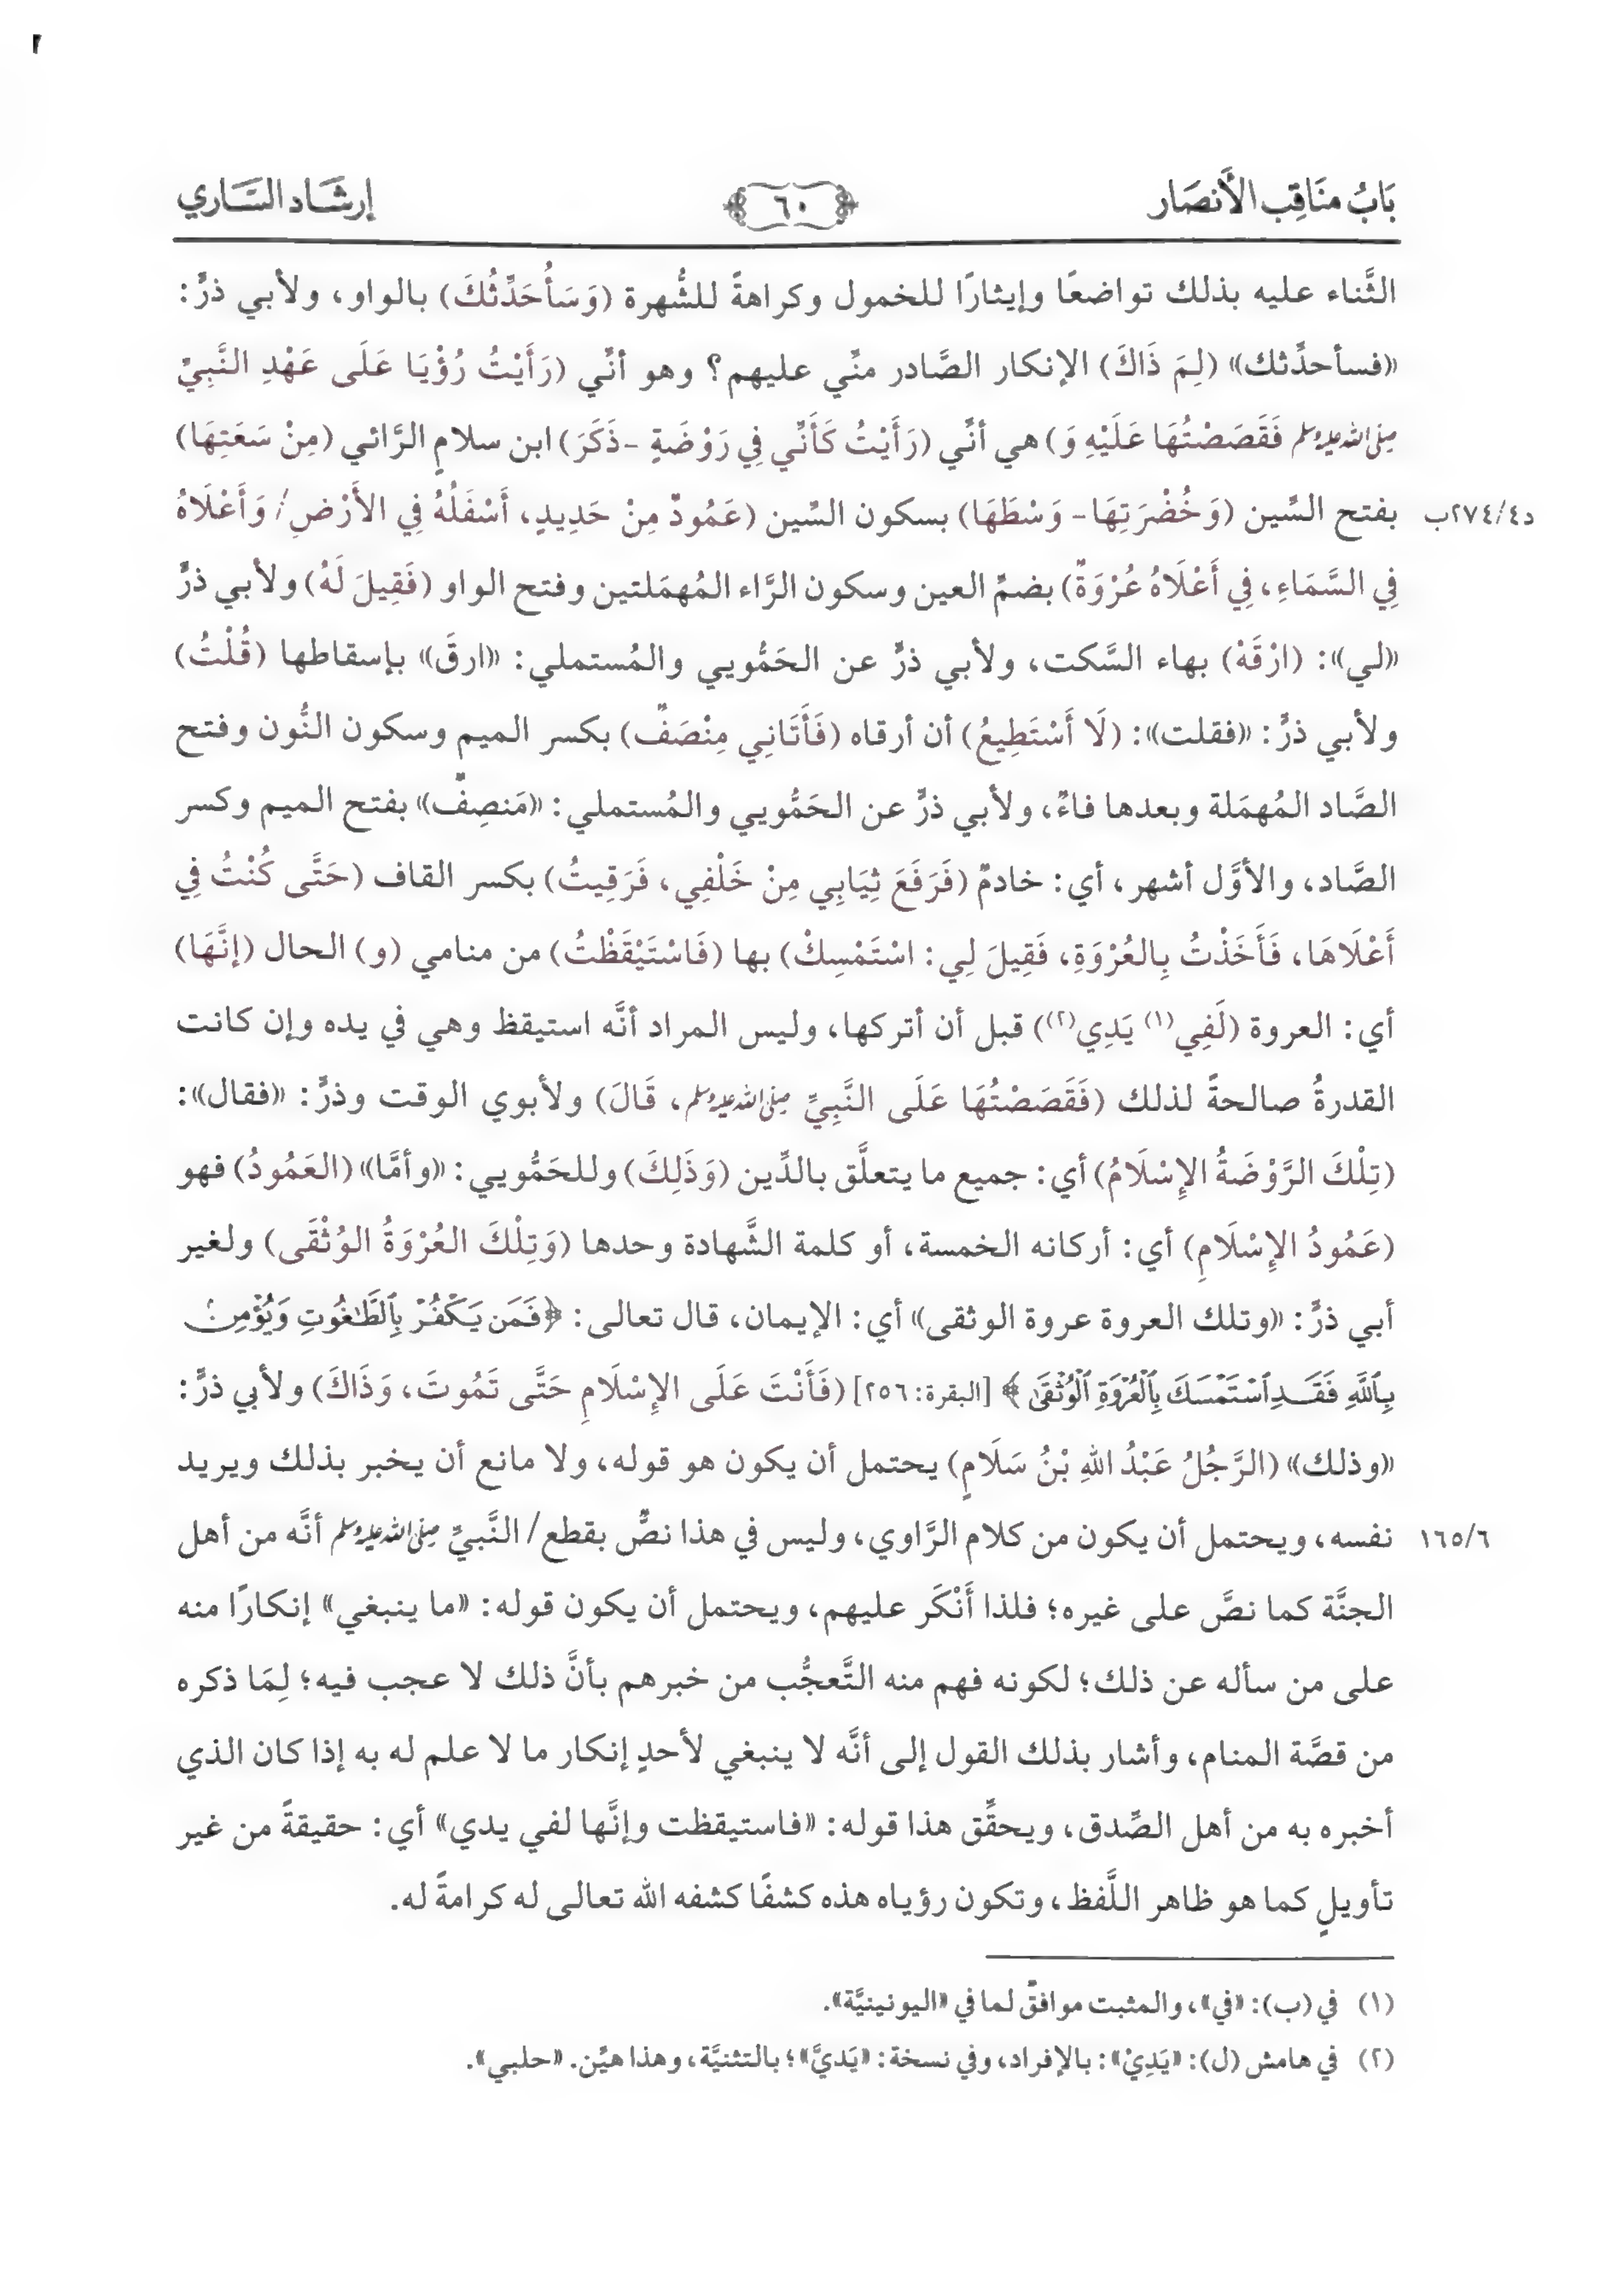 بَابُ مَنَاقِبِ الأَنصَار ٦٠ إرشَاد السَّاري
الثَّناء عليه بذلك تواضعًا وإيثارًا للخمول وكراهةً للشُّهرة (وَسَأُحَدِّثُكَ) بالواو، ولأبي ذرٍّ:
«فسأحدِّثك» (لِمَ ذَاكَ) الإنكار الصَّادر منِّي عليهم؟ وهو أنِّي (رَأَيْتُ رُؤْيَا عَلَى عَهْدِ النَّبِيِّ
صلى الله عليه وسلم فَقَصَصْتُهَا عَلَيْهِ وَ) هي أنِّي (رَأَيْتُ كَأَنِّي فِي رَوْضَةٍ -ذَكَرَ) ابن سلامٍ الرَّائي (مِنْ سَعَتِهَا)
د٢٧٤/٤ب بفتح السِّين (وَخُضْرَتِهَا- وَسْطَهَا) بسكون السِّين (عَمُودٌ مِنْ حَدِيدٍ، أَسْفَلُهُ فِي الأَرْضِ/ وَأَعْلَاهُ
فِي السَّمَاءِ، فِي أَعْلَاهُ عُرْوَةٌ) بضمِّ العين وسكون الرَّاء المُهمَلتين وفتح الواو (فَقِيلَ لَهُ) ولأبي ذرٍّ
«لي»: (ارْقَهْ) بهاء السَّكت، ولأبي ذرٍّ عن الحَمُّويي والمُستملي: «ارقَ» بإسقاطها (قُلْتُ)
ولأبي ذرٍّ: «فقلت»: (لَا أَسْتَطِيعُ) أن أرقاه (فَأَتَانِي مِنْصَفٌ) بكسر الميم وسكون النُّون وفتح
الصَّاد المُهمَلة وبعدها فاءٌ، ولأبي ذرٍّ عن الحَمُّويي والمُستملي: «مَنصِفٌ» بفتح الميم وكسر
الصَّاد، والأوَّل أشهر، أي: خادمٌ (فَرَفَعَ ثِيَابِي مِنْ خَلْفِي، فَرَقِيتُ) بكسر القاف (حَتَّى كُنْتُ فِي
أَعْلَاهَا، فَأَخَذْتُ بِالعُرْوَةِ، فَقِيلَ لِي: اسْتَمْسِكْ) بها (فَاسْتَيْقَظْتُ) من منامي (و) الحال (إنَّهَا)
أي: العروة (لَفِي(١) يَدِي(٢)) قبل أن أتركها، وليس المراد أنَّه استيقظ وهي في يده وإن كانت
القدرةُ صالحةً لذلك (فَقَصَصْتُهَا عَلَى النَّبِيِّ صلى الله عليه وسلم، قَالَ) ولأبوي الوقت وذرٍّ: «فقال»:
(تِلْكَ الرَّوْضَةُ الإِسْلَامُ) أي: جميع ما يتعلَّق بالدِّين (وَذَلِكَ) وللحَمُّويي: «وأمَّا» (العَمُودُ) فهو
(عَمُودُ الإِسْلَامِ) أي: أركانه الخمسة، أو كلمة الشَّهادة وحدها (وَتِلْكَ العُرْوَةُ الوُثْقَى) ولغير
أبي ذرٍّ: «وتلك العروة عروة الوثقى» أي: الإيمان، قال تعالى: ﴿فَمَن يَكْفُرْ بِٱلطَّٰغُوتِ وَيُؤْمِنۢ
بِٱللَّهِ فَقَدِ ٱسْتَمْسَكَ بِٱلْعُرْوَةِ ٱلْوُثْقَىٰ﴾ [البقرة: ٢٥٦] (فَأَنْتَ عَلَى الإِسْلَامِ حَتَّى تَمُوتَ، وَذَاكَ) ولأبي ذرٍّ:
«وذلك» (الرَّجُلُ عَبْدُ اللهِ بْنُ سَلَامٍ) يحتمل أن يكون هو قوله، ولا مانع أن يخبر بذلك ويريد
١٦٥/٦ نفسه، ويحتمل أن يكون من كلام الرَّاوي، وليس في هذا نصٌّ بقطع/ النَّبيِّ صلى الله عليه وسلم أنَّه من أهل
الجنَّة كما نصَّ على غيره؛ فلذا أَنْكَر عليهم، ويحتمل أن يكون قوله: «ما ينبغي» إنكارًا منه
على من سأله عن ذلك؛ لكونه فهم منه التَّعجُّب من خبرهم بأنَّ ذلك لا عجب فيه؛ لِمَا ذكره
من قصَّة المنام، وأشار بذلك القول إلى أنَّه لا ينبغي لأحدٍ إنكار ما لا علم له به إذا كان الذي
أخبره به من أهل الصِّدق، ويحقِّق هذا قوله: «فاستيقظت وإنَّها لفي يدي» أي: حقيقةً من غير
تأويلٍ كما هو ظاهر اللَّفظ، وتكون رؤياه هذه كشفًا كشفه الله تعالى له كرامةً له.
(١) في (ب): «في»، والمثبت موافقٌ لما في «اليونينيَّة».
(٢) في هامش (ل): «يَدِيْ»: بالإفراد، وفي نسخة: «يَديَّ»؛ بالتثنيَّة، وهذا هيِّن. «حلبي».